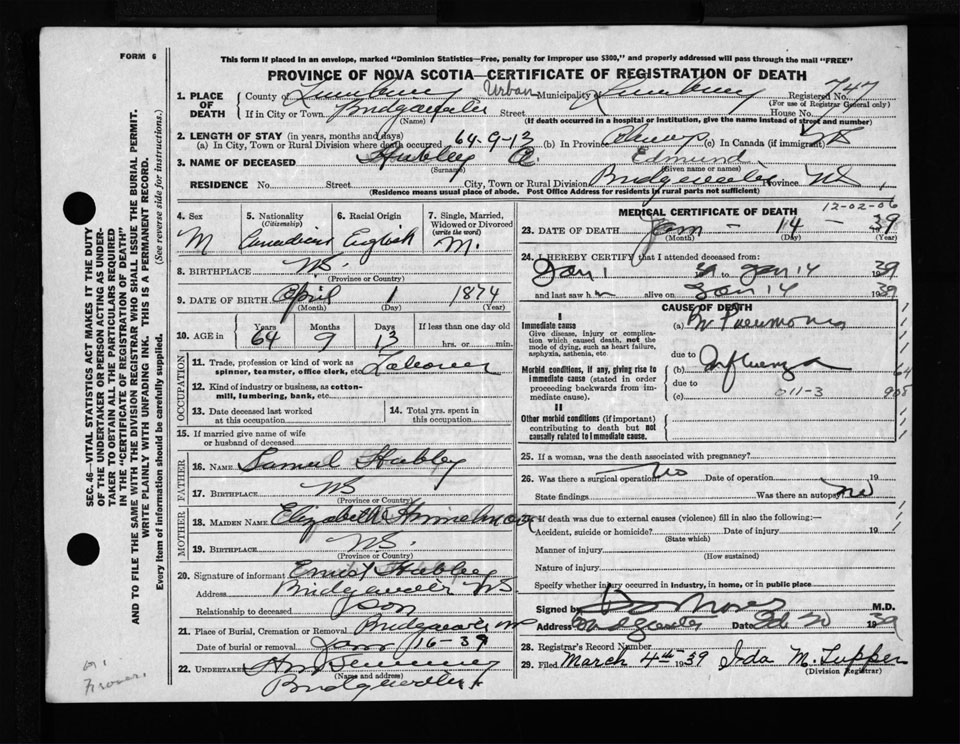 FORM 6
This form if placed in an envelope, marked "Dominion Statistics—Free, penalty for improper use $300," and properly addressed will pass through the mail "FREE"
PROVINCE OF NOVA SCOTIA—CERTIFICATE OF REGISTRATION OF DEATH
SEC. 46—VITAL STATISTICS ACT MAKES IT THE DUTY
OF THE UNDERTAKER OR PERSON ACTING AS UNDER-
TAKER TO OBTAIN ALL THE PARTICULARS REQUIRED
IN THE "CERTIFICATE OF REGISTRATION OF DEATH"
AND TO FILE THE SAME WITH THE DIVISION REGISTRAR WHO SHALL ISSUE THE BURIAL PERMIT.
WRITE PLAINLY WITH UNFADING INK. THIS IS A PERMANENT RECORD.
Every item of information should be carefully supplied. (See reverse side for instructions.)
1. PLACE OF DEATH County of Lunenburg Urban Municipality of Lunenburg Registered No. 747
(For use of Registrar General only)
If in City or Town Bridgewater Street House No.
(Name) (If death occurred in a hospital or institution, give the name instead of street and number)
2. LENGTH OF STAY (in years, months and days)
(a) In City, Town or Rural Division where death occurred 64-9-13 (b) In Province Always (c) In Canada (if immigrant)
3. NAME OF DECEASED Hubley A. Edmund
(Surname) (Given name or names)
RESIDENCE No. Street City, Town or Rural Division Bridgewater Province NS
(Residence means usual place of abode. Post Office Address for Residents in rural parts not sufficient)
4. Sex M
5. Nationality (Citizenship) Canadian
6. Racial Origin English
7. Single, Married, Widowed or Divorced (write the word) M.
8. BIRTHPLACE N.S.
(Province or Country)
9. DATE OF BIRTH April 1 1874
(Month) (Day) (Year)
10. AGE in Years 64 Months 9 Days 13 If less than one day old hrs. or min.
OCCUPATION
11. Trade, profession or kind of work as spinner, teamster, office clerk, etc. Laborer
12. Kind of industry or business, as cotton-mill, lumbering, bank, etc.
13. Date deceased last worked at this occupation
14. Total yrs. spent in this occupation
15. If married give name of wife or husband of deceased
FATHER
16. NAME Samuel Hubley
17. BIRTHPLACE NS
(Province or Country)
MOTHER
18. MAIDEN NAME Elizabeth Himmelman
19. BIRTHPLACE N.S.
(Province or Country)
20. Signature of informant Ernest Hubley
Address Bridgewater NS
Relationship to deceased Son
21. Place of Burial, Cremation or Removal Bridgewater NS
Date of burial or removal Jan 16-39
22. UNDERTAKER
(Name and address)
Bridgewater
MEDICAL CERTIFICATE OF DEATH
12-02-06
23. DATE OF DEATH Jan - 14 - 39
(Month) (Day) (Year)
24. I HEREBY CERTIFY that I attended deceased from
Jan 1 to Jan 14 1939
and last saw him alive on Jan 14 1939
CAUSE OF DEATH
I
Immediate cause
Give disease, injury or complication which caused death, not the mode of dying, such as heart failure, asphyxia, asthenia, etc.
(a) Pneumonia
due to
Morbid conditions, if any, giving rise to immediate cause (stated in order proceeding backwards from immediate cause).
(b) Influenza
due to
(c) 011-3
II
Other morbid conditions (if important) contributing to death but not causally related to immediate cause.
25. If a woman, was the death associated with pregnancy?
26. Was there a surgical operation? No Date of operation 19
State findings Was there an autopsy No
27. If death was due to external causes (violence) fill in also the following:
Accident, suicide or homicide? Date of injury 19
(State which)
Manner of injury
(How sustained)
Nature of injury
Specify whether injury occurred in industry, in home, or in public place
Signed by M.D.
Address Bridgewater Date 1939
28. Registrar's Record Number
29. Filed March 4th 1939 Ida M. Tupper
(Division Registrar)